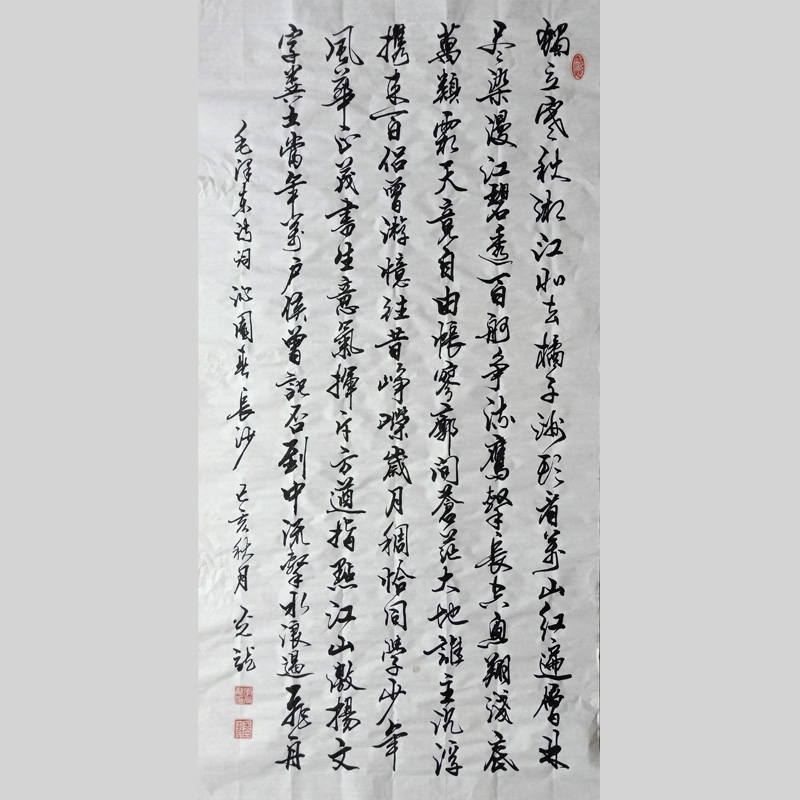 獨立寒秋湘江北去橘子洲頭看萬山紅遍層林
尽染漫江碧透百舸争流鷹擊長空魚翔淺底
萬類霜天竞自由悵寥廓问蒼茫大地誰主沉浮
携來百侣曾游憶往昔崢嶸歲月稠恰同學少年
風華正茂書生意氣揮斥方遒指點江山激揚文
字糞土當年萬户侯曾記否到中流擊水浪遏飛舟
毛澤東詩詞 沁園春 長沙 己亥秋月